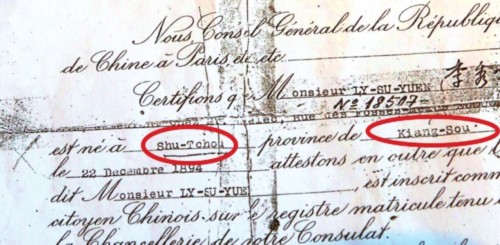 Nous, Consul Général de la République
de Chine à Paris, etc. etc.
Certifions q Monsieur LY-SU-YUEN 李
N° 18507
rue des Fossés
est né à Shu-Tchou province de Kiang-Sou
le 22 Decembre 1894 attestons en outre que l
dit Monsieur LY-SU-YUE , est inscrit comm
citoyen Chinois sur le registre matricule tenu
la Chancellerie de notre Consulat.